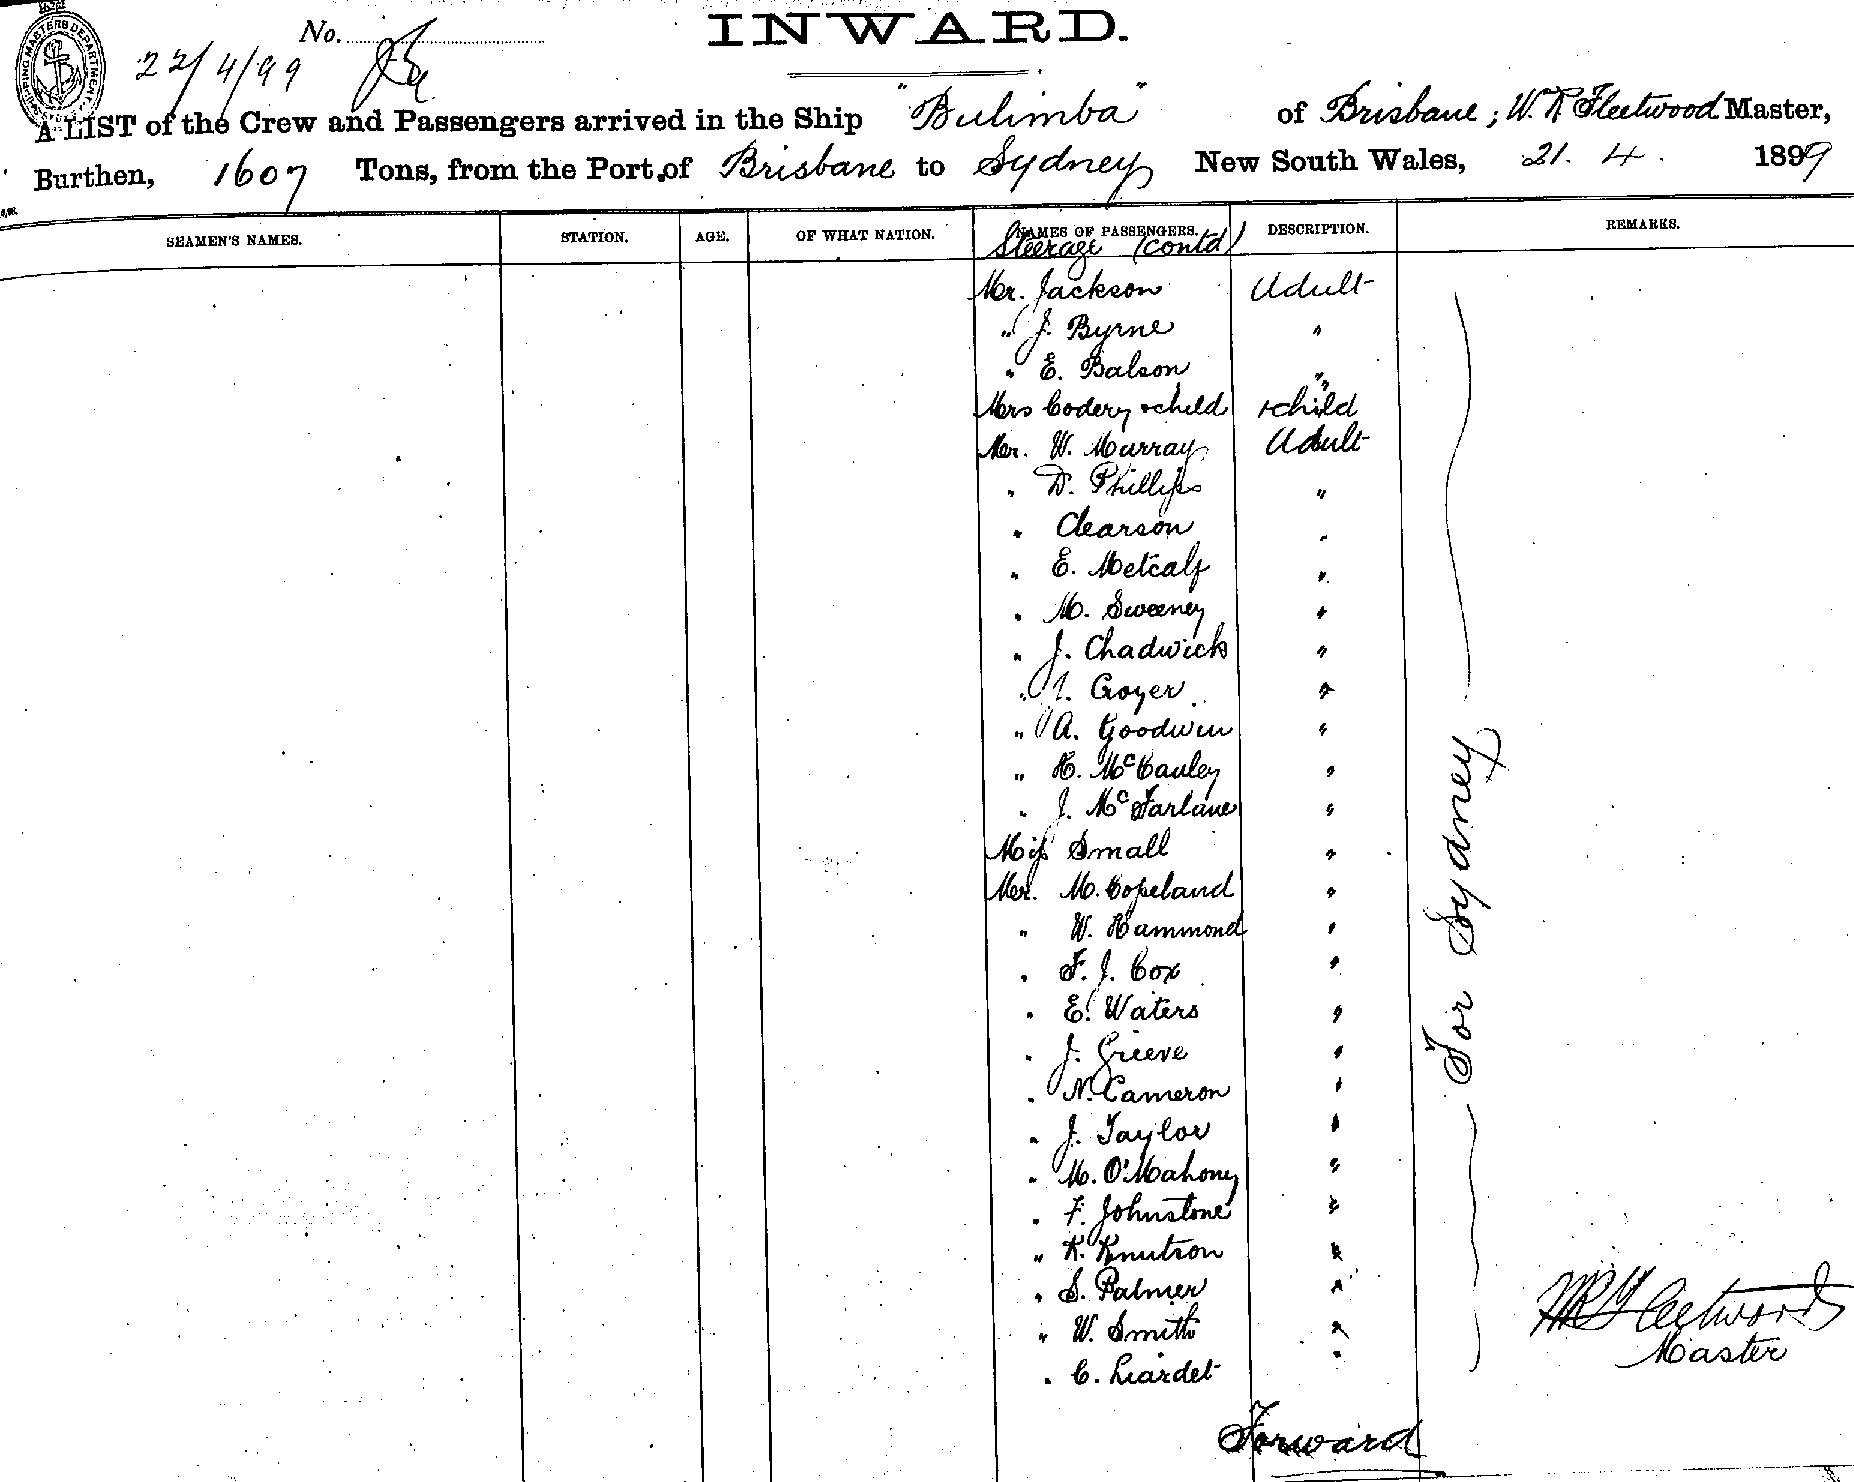 INWARD.
No.
22/4/99
SHIPPING MASTERS DEPARTMENT
A LIST of the Crew and Passengers arrived in the Ship "Bulimba" of Brisbane; W. R Fleetwood Master,
Burthen, 1607 Tons, from the Port of Brisbane to Sydney New South Wales, 21. 4. 1899
SEAMEN'S NAMES. STATION. AGE. OF WHAT NATION. NAMES OF PASSENGERS. DESCRIPTION. REMARKS.
Steerage (contd)
Mr. Jackson Adult
" J. Byrne "
" E. Balson "
Mrs Codery & child & child
Mr. W. Murray Adult
" D. Phillips "
" Clearson "
" E. Metcalf "
" M. Sweeney "
" J. Chadwick "
" Croyer "
" A. Goodwin "
" H. McCauley "
" J. McFarlane "
Miss Small "
Mr. M. Copeland "
" W. Hammond "
" F. J. Cox "
" E. Waters "
" J. Grieve "
" N. Cameron "
" J. Taylor "
" M. O'Mahoney "
" F. Johnstone "
" K. Knutson "
" S. Palmer "
" W. Smith "
" C. Liardet "
For Sydney
WR Fleetwood
Master
Forward